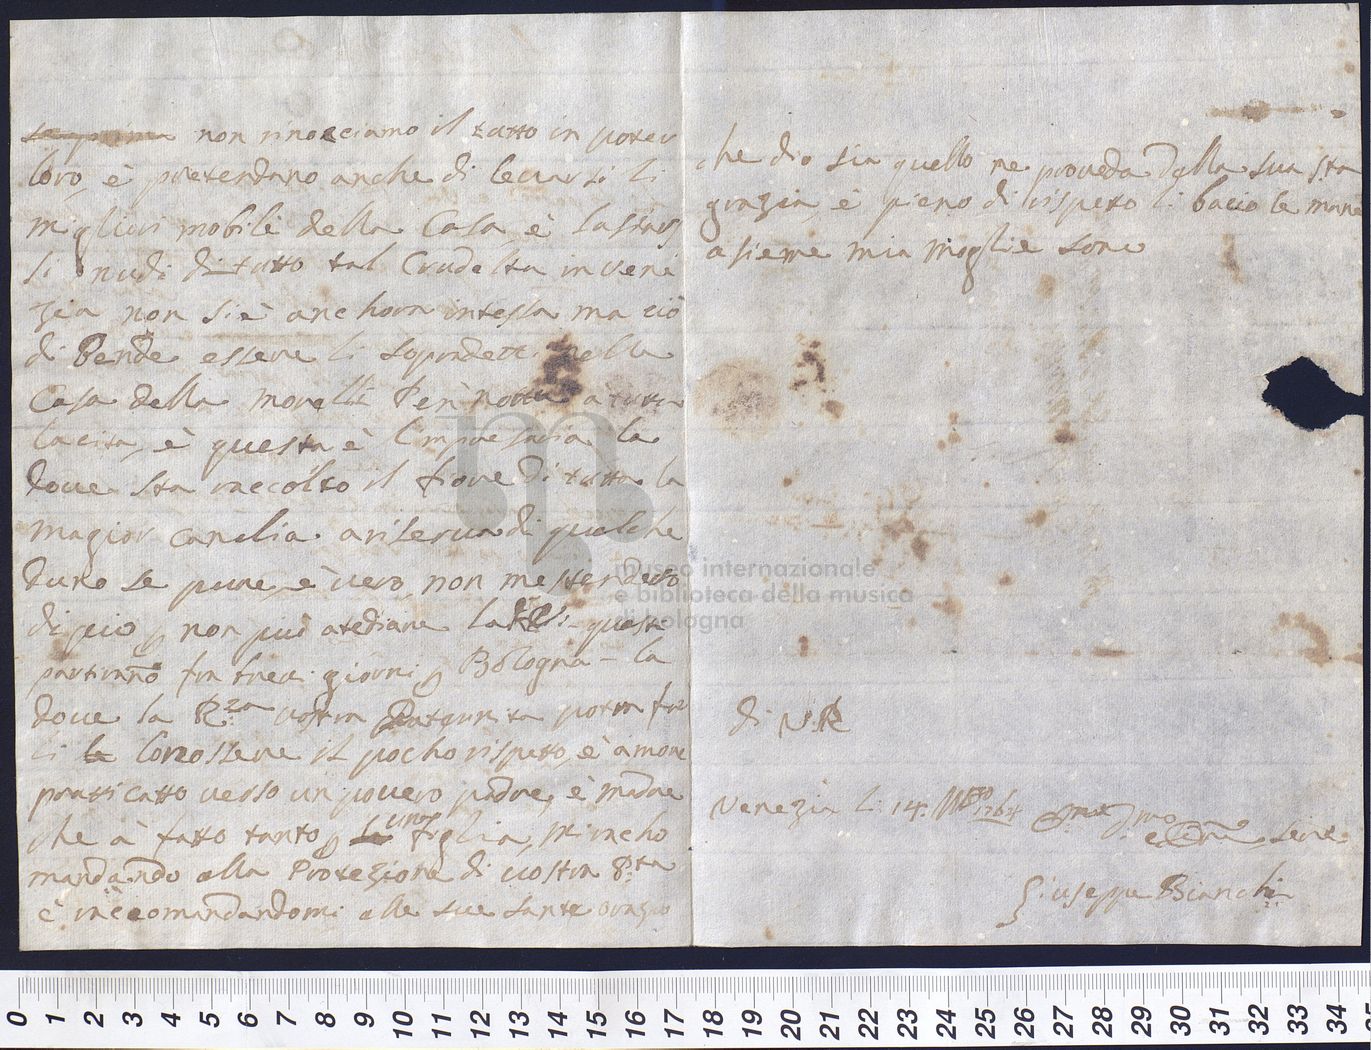 non rinonciamo il tutto in poter
loro, è pretendano anche di levarsi li
migliori mobili della Casa, è lasiar
si nudi di tutto tal Crudeltà in vene
zia non siè anchora intessa ma ciò
di Pende essere li sopradetti nella
Casa della Morelli Per notta a tutta
la cita, è questa è l'impresaria la
dove sta racolto il fiore di tutta la
magior canalia a riserva di qualche
duno se pure è vero, non mestendero
di piu p non piu atediare la VR: queste
partirano fra trei giorni p Bologna - la
dove la R.za vostra Paternita potra far
li conossere il pocho rispeto, è amore
pratticatto verso un povero padre, è madre
che à fatto tanto p una figlia, mi racho
mandando alla Protezione di vostra P.ta
è raccomandandomi alle sue Sante orazio
che dio sia quello ne proveda della sua S.ta
grazia, è pieno di rispeto li bacio le mane
asieme mia moglie sono
di V.R
Venezia li 14: 1764
Serv.
Giuseppe Bianchi
museo internazionale
e biblioteca della musica
di bologna
0 1 2 3 4 5 6 7 8 9 10 11 12 13 14 15 16 17 18 19 20 21 22 23 24 25 26 27 28 29 30 31 32 33 34